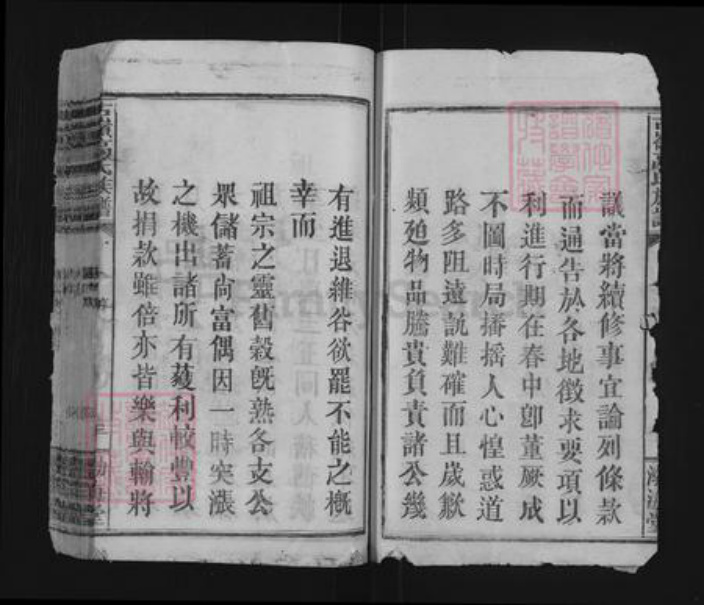 議當將續修事宜論列條款
而通告於各地徵求要項以
利進行期在春中卽董厥成
不圖時局播搖人心惶惑道
路多阻遠訊難確而且歲歉
頻廹物品騰貴負責諸公幾
有進退維谷欲罷不能之概
幸而
祖宗之靈舊穀旣熟各支公
衆儲蓄尙富偶因一時突漲
之機出諸所有蒦利較豐以
故捐款雖倍亦皆樂與輸將